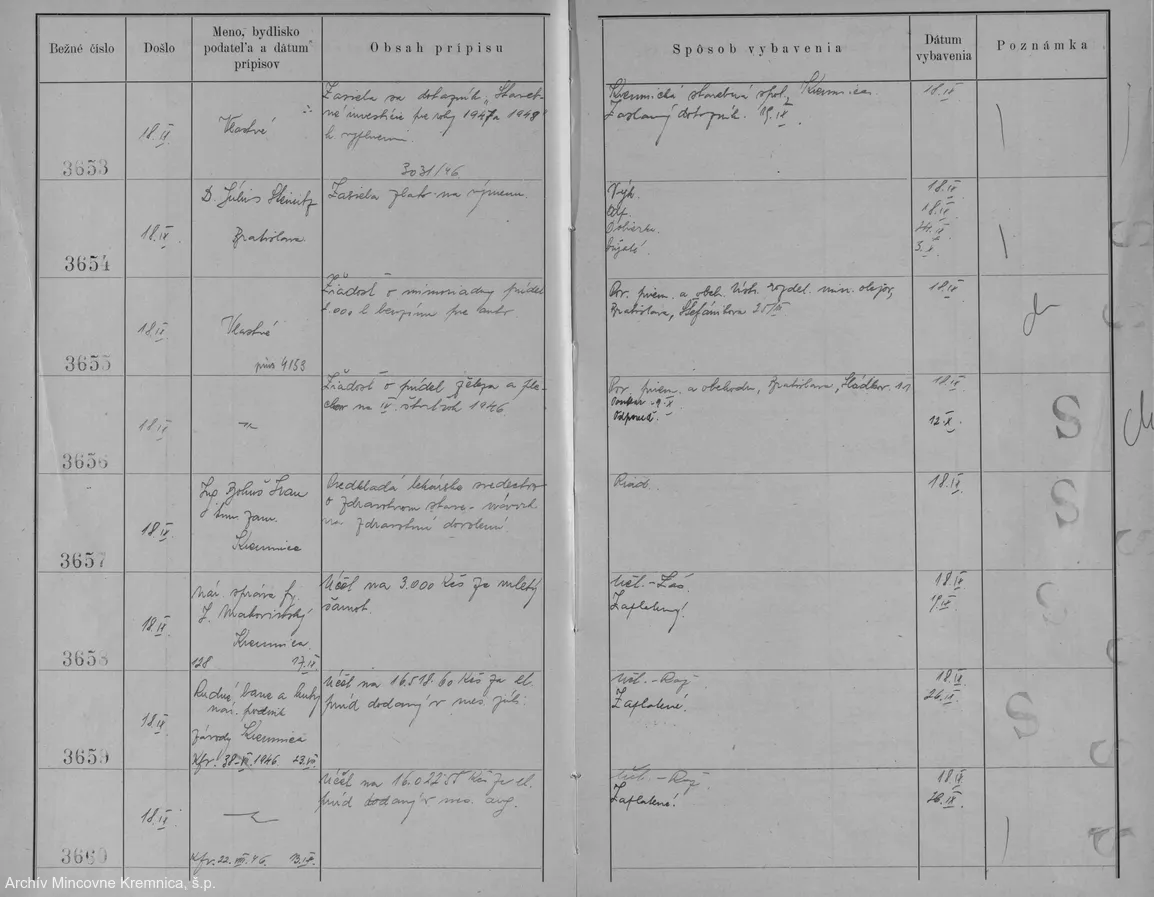 Bežné číslo
Došlo
Meno, bydlisko
podateľa a dátum
prípisov
Obsah prípisu
Spôsob vybavenia
Dátum
vybavenia
Poznámka
3653
18.IX.
Vlastné
Zasiela sa dotazník „Staveb-
né investície pre roky 1947 a 1948"
k vyplneniu.
3031/46
Kremnická stavebná spol., Kremnica.
Zaslaný dotazník. 19.IX.
18.IX.
3654
18.IX.
D. Július Steinitz
Bratislava.
Zasiela zlato na výmenu.
Výk.
18.IX.
18.IX.
24.IX.
3.X.
3655
18.IX.
Vlastné
4153
Žiadosť o mimoriadny prídel
1.000 l benzínu pre auto.
Pov. priem. a obch. rozdel. min. olejov,
Bratislava, Štefánikova
18.IX.
3656
18.IX.
Žiadosť o prídel železa a ple-
chov na IV. štvrťrok 1946.
Pov. priem. a obchodu, Bratislava, Sládkov. 11
18.IX.
Odpoveď.
12.X.
S
3657
18.IX.
Ing. Bohuš Ivan
zam.
Kremnica
Predkladá lekárske svedectvo
o zdravotnom stave - návrh
na zdravotnú dovolenú
Riad.
18.IX.
S
3658
18.IX.
nár. správa fy.
Z. Makovický
Kremnica.
128 17.IX.
Účet na 3.000 Kčs za mletý
šamot.
Účt. -
Zaplatený!
18.IX.
19.IX.
S
3659
18.IX.
Rudné bane a huty
nár. podnik
závody Kremnica
Kfr. 38-VII. 1946
Účet na 16.518.60 Kčs za el.
prúd dodaný v mes. júli.
Účt. -
Zaplatené.
18.IX.
26.IX.
S
3660
18.IX.
Kfr. 22.VIII.46. 13.IX.
Účet na 16.022 Kčs za el.
prúd dodaný v mes. aug.
Účt. -
Zaplatené!
18.IX.
26.IX.
Archív Mincovne Kremnica, š.p.